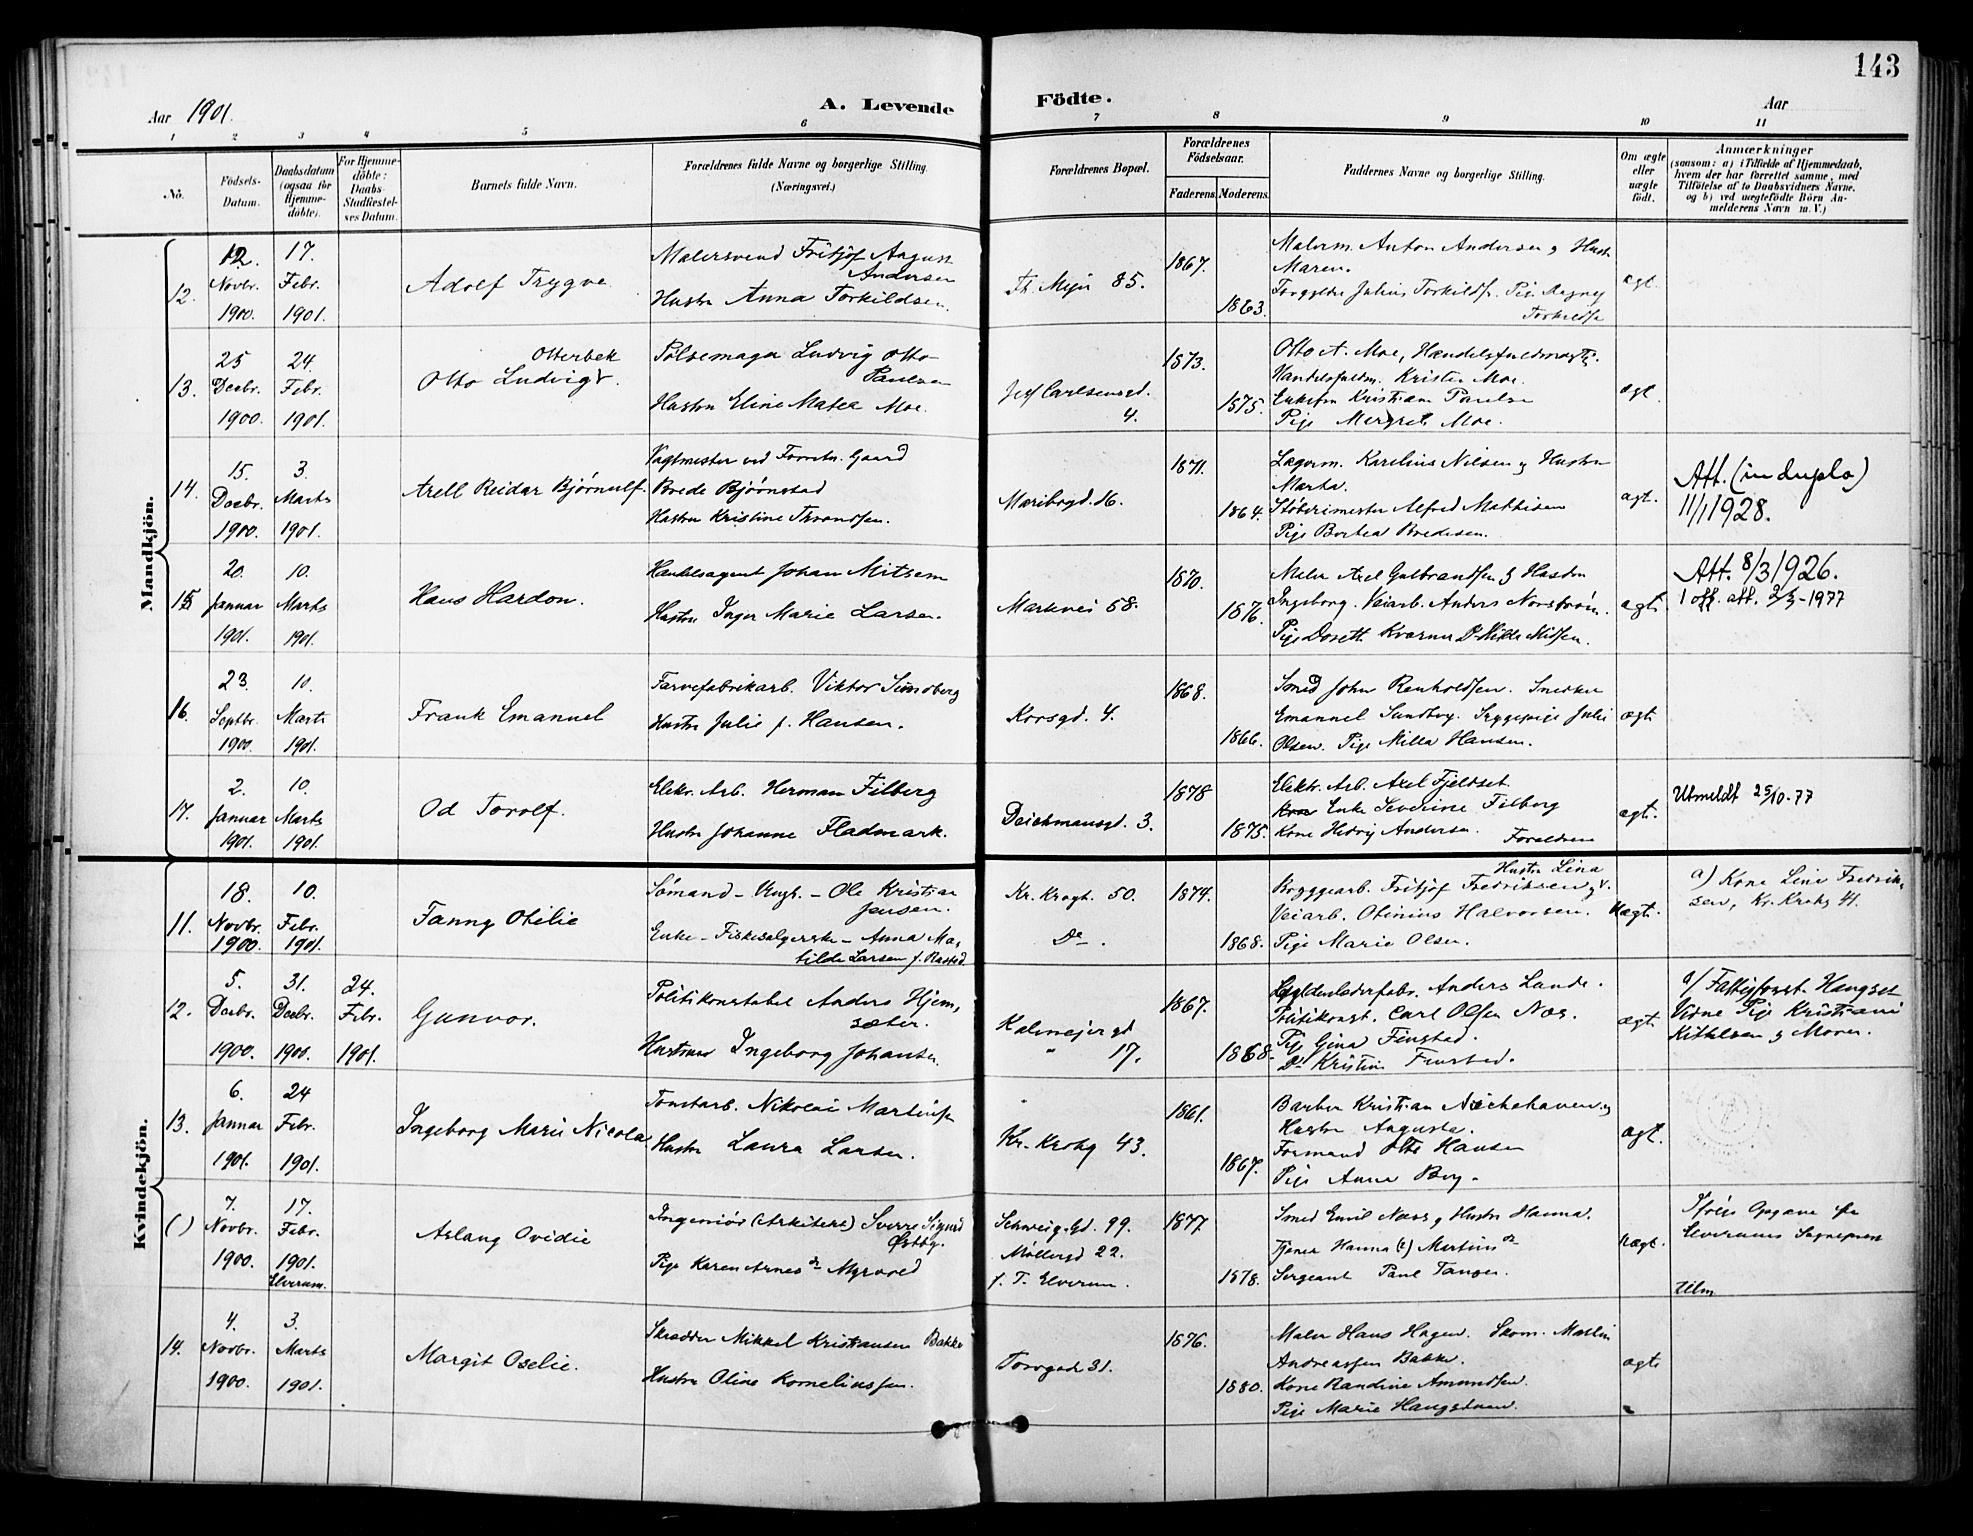 143
Aar 1901.
A. Levende Födte.
Aar
1 2 3 4 5 6 7 8 9 10 11
No.
Födsels-Datum.
Daabsdatum (ogsaa for Hjemmedöbte).
For Hjemmedöbte: Daabs-Stadfæstelses Datum.
Barnets fulde Navn.
Forældrenes fulde Navne og borgerlige Stilling (Næringsvei.)
Forældrenes Bopæl.
Forældrenes Födselsaar.
Faderens. Moderens.
Faddernes Navne og borgerlige Stilling.
Om ægte eller uægte födt.
Anmærkninger
(saasom: a) i Tilfælde af Hjemmedaab,
hvem der har forrettet samme, med
Tilföielse af to Daabsvidners Navne.
og b) ved uægtefödte Börn An-
melderens Navn m. V.)
Mandkjön.
12.
12. Novbr. 1900.
17. Febr. 1901.
Adolf Trygve
Malersvend Fritjof August
Andersen
Hustru Anna Torkildsen.
Th. Meyer 85.
1867.
1863.
Malerm. Anton Andersen & Hustr
Maren.
Forgylder Julius Torkilds. Pige Ragna
Torkilds
ægt.
13.
25 Decbr. 1900.
24. Febr. 1901.
Otterbek
Otto Ludvig
Pølsemager Ludvig Otto
Paulsen
Hustru Eline Matea Moe.
Jess Carlsensgd.
4.
1873.
1875.
Otto A. Moe, Handelsfuldmægt.
Handelsfuldm. Krister Moe.
Kristian Paulsen
Pige Margrete Moe.
ægt.
14.
15. Decbr. 1900.
3. Marts 1901.
Arell Reidar Bjørnulf.
Vagtmester ved Gaard
Brede Bjørnstad
Hustru Kristine Throndsen.
Maribogd. 16.
1871.
1864.
Lagerm. Karelius Nilsen & Hustru
Marta.
Støberimester Alfred Mathisen
Pige Bertea Bredesen.
ægt.
Att. (in duplo)
11/1 1928.
15
20. Januar 1901.
10. Marts 1901.
Hans Hardon.
Handelsagent Johan Mitsem
Hustru Inger Marie Larsen.
Markvei 58.
1870.
1876.
Maler Axel Gulbrandsen & Hustru
Ingeborg. Veiarb. Anders Norstrøm.
Pige Dorett Kværner
ægt.
Att. 8/3 1926.
1 off. att. 2/3-1977
16.
23. Septbr. 1900.
10. Marts 1901.
Frank Emanuel
Farvefabrikarb. Viktor Sundberg
Hustru Julie f. Hansen.
Korsgd. 4.
1868.
1866.
Smed John Renholdsen. Snekker
Emanuel Sundbg. Sygepige Julie
Olsen. Pige Milla Hansen.
ægt
17.
2. Januar 1901.
10. Marts 1901.
Od Torolf.
Elektr. Arb. Herman Filberg
Hustru Johanne Fladmark.
Deichmansgd. 3.
1878
1875.
Elektr. Arb. Axel Fjeldset.
Enke Severine Filberg
Kone Hedvig Andersen. Forældrene
ægt.
Utmeldt 25/10-77
Kvindekjön.
11.
18. Novbr. 1900.
10. Febr. 1901.
Fanny Otilie
Sømand - Ungk. - Ole Kristian
Jensen.
Enke - Fiskesælgerske - Anna Ma-
tilde Larsen f. Rastad
Kr. Krogt. 50.
Do.
1874.
1868.
Hustru Lina
Bryggearb. Fritjof Fredriksen
Veiarb. Otinius Halvorsen.
Pige Marie Olsen.
Uægt.
a) Kone Line Fredrik-
sen, Kr. Krohg 41.
12.
5. Decbr. 1900.
31. Decbr. 1900.
24. Febr. 1901.
Gunvor.
Politikonstabel Anders Hjem-
sæter.
Hustru Ingeborg Johansen
Kalmejergd
" 17.
1867.
1868.
Gyldenlæderfabr. Anders Lande.
Politikonst. Carl Olsen Næs.
Pige Gina Finstad.
Do Kristine Finstad.
ægt
a/ Fattigforst. Haugset
Vidne Pige Kristiane
Kittelsen & Moren.
13.
6. Januar 1901.
24 Febr. 1901.
Ingeborg Marie Nicola
Tomtarb. Nikolai Martins
Hustru Laura Larsen.
Kr. Krohg 43.
1861.
1867.
Barber Kristian Aichehaven &
Hustru Augusta.
Formand Otto Hansen
Pige Anna Berg.
ægt.
( )
7. Novbr. 1900.
17. Febr. 1901. Elverum.
Aslaug Ovidie
Ingeniør (Arkitekt) Sverre Sigurd
Østby.
Pige Karen Arnesdr Myrvold
Schweig.gd. 99.
Møllergd 22.
f. T. Elverum.
1877
1878.
Smed Emil Næss & Hustru Hanna.
Tjener Hanna (e) Martinsdr
Sergeant Paul Tangen.
Uægt.
Ifølge Opgave fra
Elverums Sogneprest
tilm
14.
4. Novbr. 1900.
3. Marts 1901.
Margit Oselie.
Skrædder Mikkel Kristiansen Bakke
Hustru Oline Korneliussen.
Torvgad 31.
1876.
1880.
Maler Hans Hagen. Skom. Martin
Andreassen Bakke.
Kone Randine Amundsen.
Pige Marie Haugstuen.
ægt